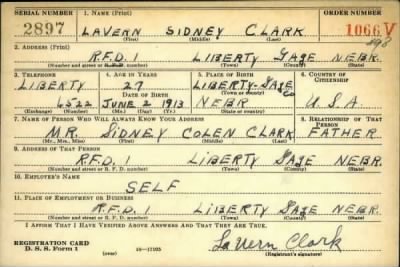 SERIAL NUMBER 1. NAME (Print) ORDER NUMBER
2897 LAVERN SIDNEY CLARK 1066 V
(First) (Middle) (Last)
2. ADDRESS (Print)
R.F.D. LIBERTY GAGE NEBR.
(Number and street or R. F. D. number) (Town) (County) (State)
3. TELEPHONE 4. AGE IN YEARS 5. PLACE OF BIRTH 6. COUNTRY OF CITIZENSHIP
LIBERTY 27 LIBERTY-GAGE CO
DATE OF BIRTH (Town or county)
4522 JUNE 2 1913 NEBR U.S.A.
(Exchange) (Number) (Mo.) (Day) (Yr.) (State or country)
7. NAME OF PERSON WHO WILL ALWAYS KNOW YOUR ADDRESS 8. RELATIONSHIP OF THAT PERSON
MR. SIDNEY COLEN CLARK FATHER
(Mr., Mrs., Miss) (First) (Middle) (Last)
9. ADDRESS OF THAT PERSON
R.F.D. 1 LIBERTY GAGE NEBR.
(Number and street or R. F. D. number) (Town) (County) (State)
10. EMPLOYER'S NAME
SELF
11. PLACE OF EMPLOYMENT OR BUSINESS
R.F.D. 1 LIBERTY GAGE NEBR.
(Number and street or R. F. D. number) (Town) (County) (State)
I AFFIRM THAT I HAVE VERIFIED ABOVE ANSWERS AND THAT THEY ARE TRUE.
REGISTRATION CARD LaVern Clark
D. S. S. Form 1 (over) 16—17105 (Registrant's signature)